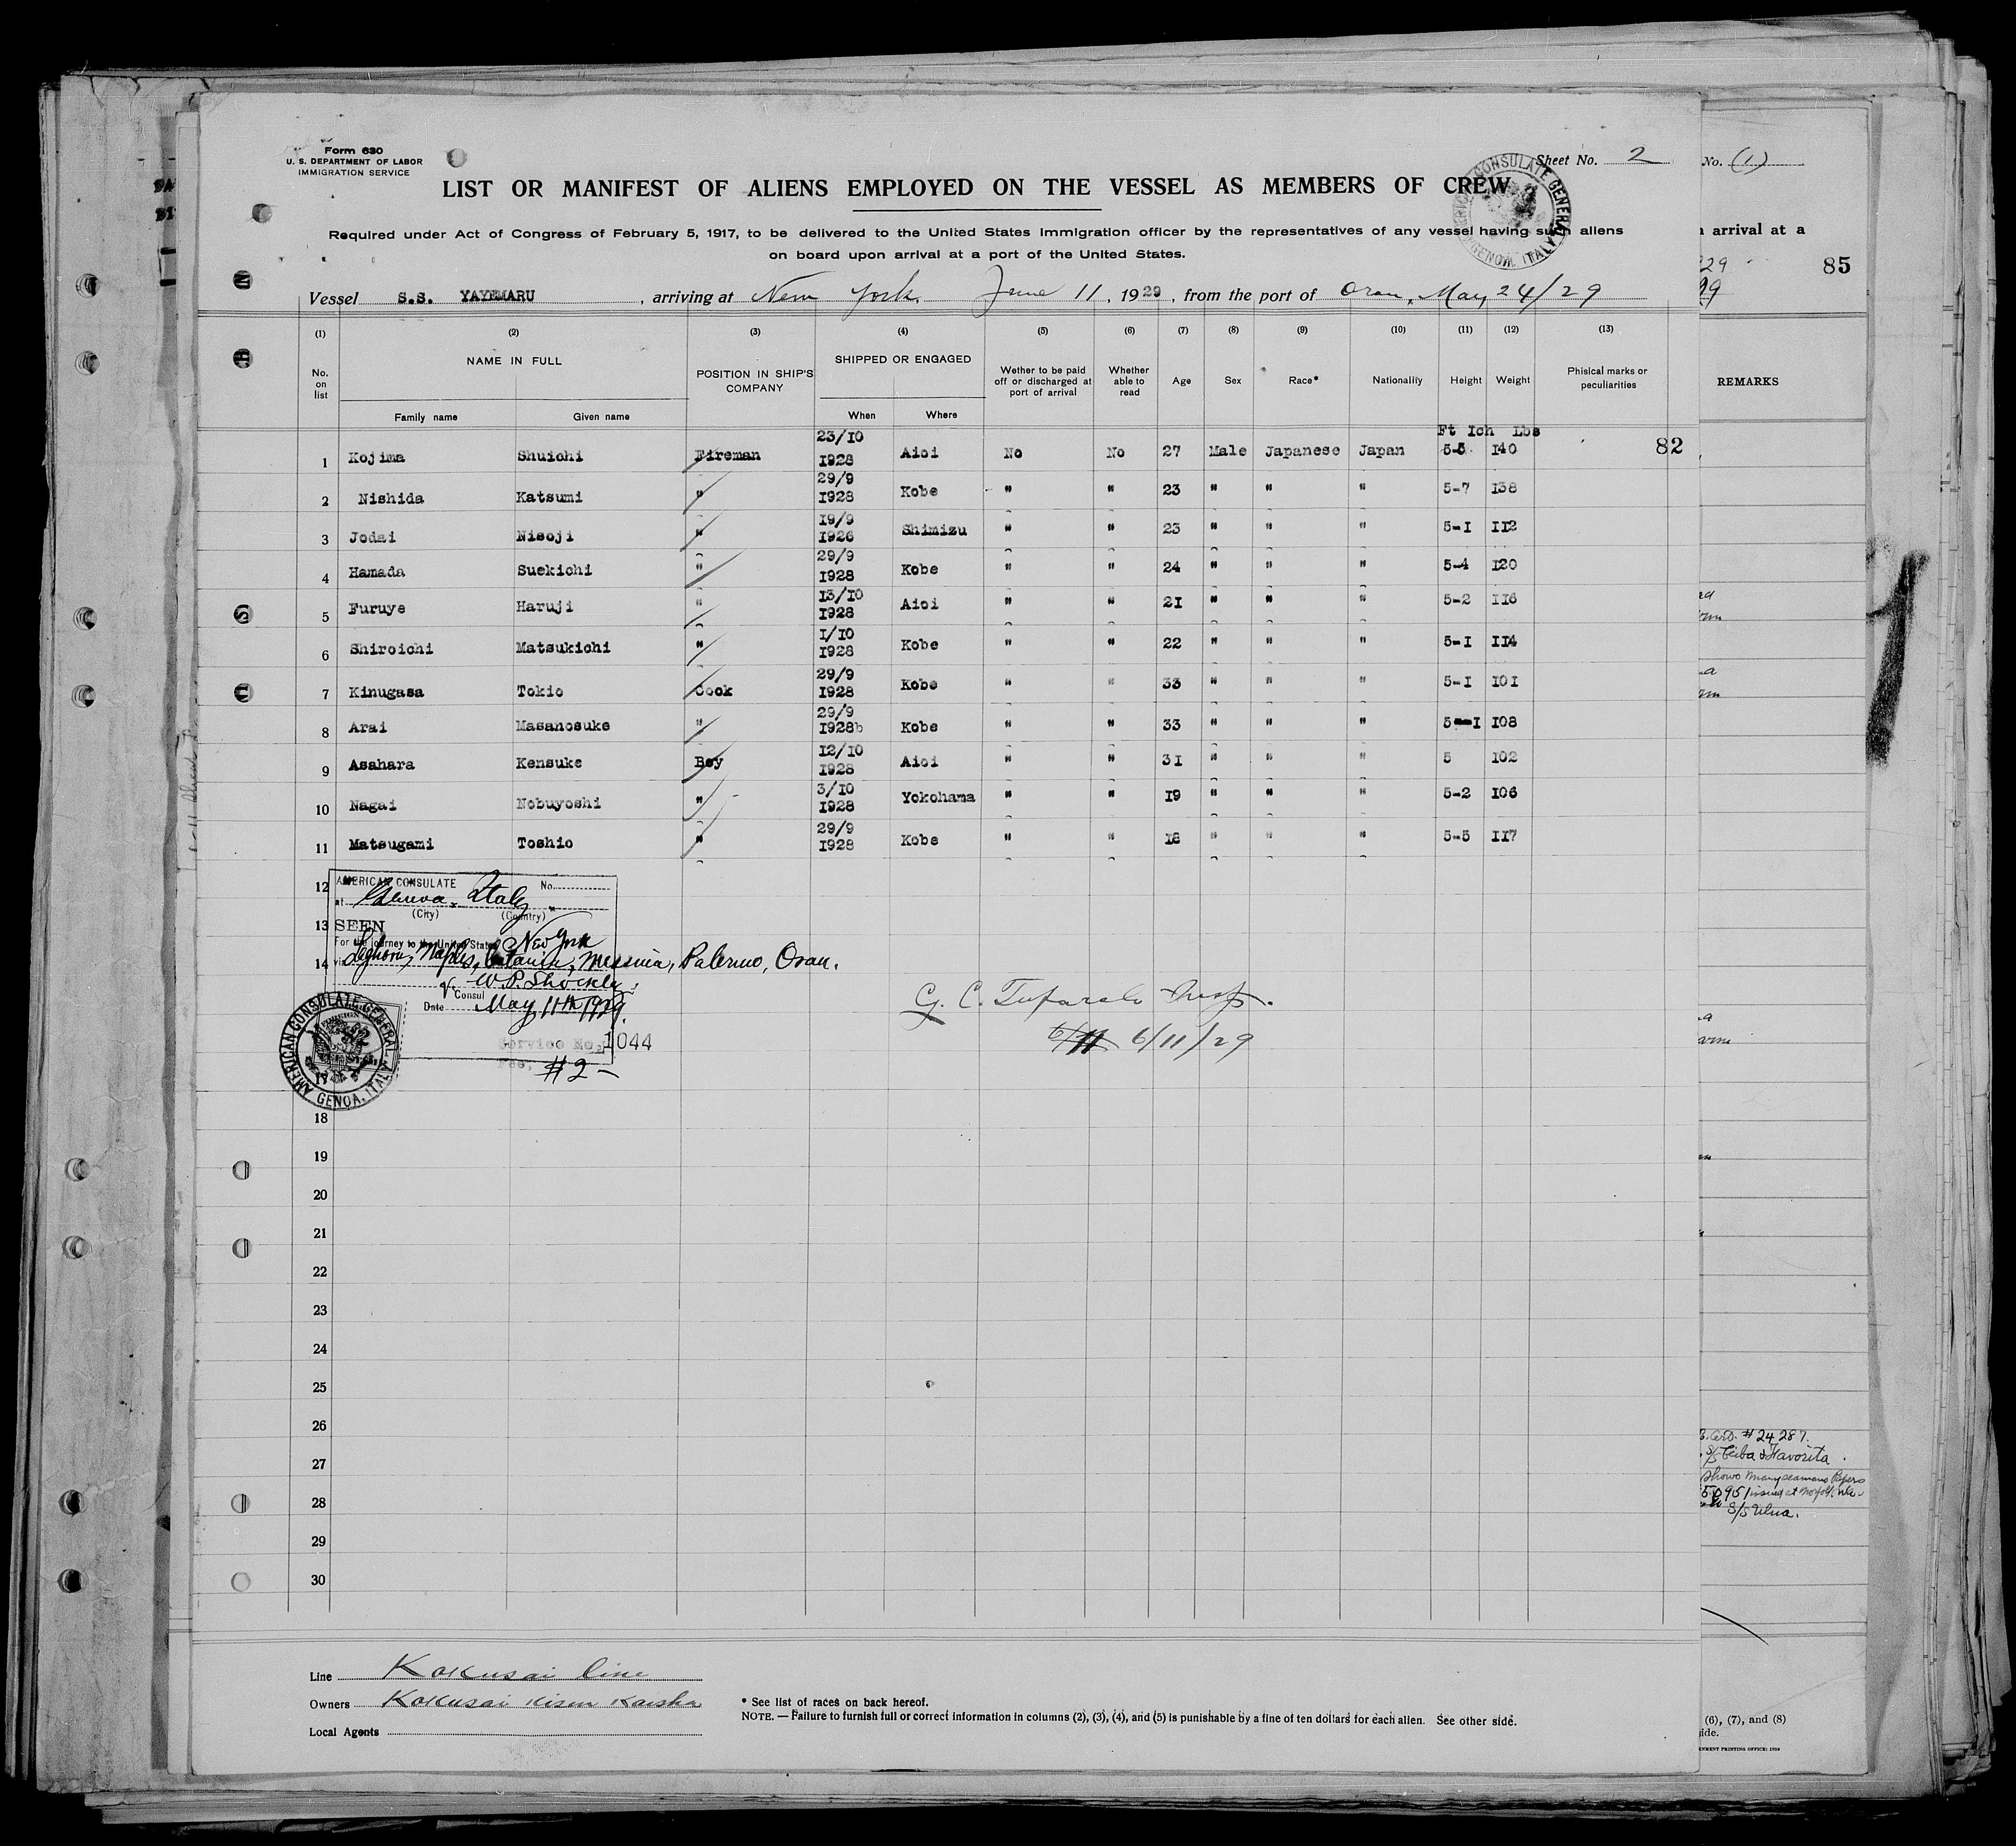 Form 630
U. S. DEPARTMENT OF LABOR
IMMIGRATION SERVICE
Sheet No. 2
No. (1)
LIST OR MANIFEST OF ALIENS EMPLOYED ON THE VESSEL AS MEMBERS OF CREW
AMERICAN CONSULATE GENERAL GENOA, ITALY
Required under Act of Congress of February 5, 1917, to be delivered to the United States Immigration officer by the representatives of any vessel having such aliens
on board upon arrival at a port of the United States.
arrival at a
85
Vessel S.S. YAYEMARU, arriving at New York, June 11, 1929, from the port of Oran, May 24/29
(1) (2) (3) (4) (5) (6) (7) (8) (9) (10) (11) (12) (13)
No. on list
NAME IN FULL
Family name Given name
POSITION IN SHIP'S COMPANY
SHIPPED OR ENGAGED
When Where
Wether to be paid off or discharged at port of arrival
Whether able to read
Age Sex Race* Nationality Height Weight
Phisical marks or peculiarities
REMARKS
Ft Ich Lbs
1 Kojima Shuichi Fireman 23/10 1928 Aioi No No 27 Male Japanese Japan 5-5 140 82
2 Nishida Katsumi " 29/9 1928 Kobe " " 23 " " " 5-7 138
3 Jodai Nisoji " 19/9 1926 Shimizu " " 23 " " " 5-1 112
4 Hamada Suekichi " 29/9 1928 Kobe " " 24 " " " 5-4 120
5 Furuye Haruji " 13/10 1928 Aioi " " 21 " " " 5-2 116
6 Shiroichi Matsukichi " 1/10 1928 Kobe " " 22 " " " 5-1 114
7 Kinugasa Tokio Cook 29/9 1928 Kobe " " 33 " " " 5-1 101
8 Arai Masanosuke " 29/9 1928b Kobe " " 33 " " " 5--1 108
9 Asahara Kensuke Boy 12/10 1928 Aioi " " 31 " " " 5 102
10 Nagai Nobuyoshi " 3/10 1928 Yokohama " " 19 " " " 5-2 106
11 Matsugami Toshio " 29/9 1928 Kobe " " 18 " " " 5-5 117
12
AMERICAN CONSULATE No.
at Genova, Italy
(City) (Country)
13
SEEN
For the journey to the United States New York
14
via Leghorn, Naples, Catania, Messina, Palermo, Oran.
V. Consul W.P. Shockley
Date May 11th 1929.
Service No. 1044
Fee, #2-
AMERICAN CONSULATE GENERAL GENOA, ITALY
G. C. Insp.
6/11 6/11/29
18
19
20
21
22
23
24
25
26
27
28
29
30
#24287.
S/S Ceiba & Favorita
shows many seamans Papers
50951 issued at Norfolk, Va.
S/S Ulua.
Line Kokusai Line
Owners Kokusai Kisen Kaisha
Local Agents
* See list of races on back hereof.
NOTE. — Failure to furnish full or correct information in columns (2), (3), (4), and (5) is punishable by a fine of ten dollars for each alien. See other side.
(6), (7), and (8)